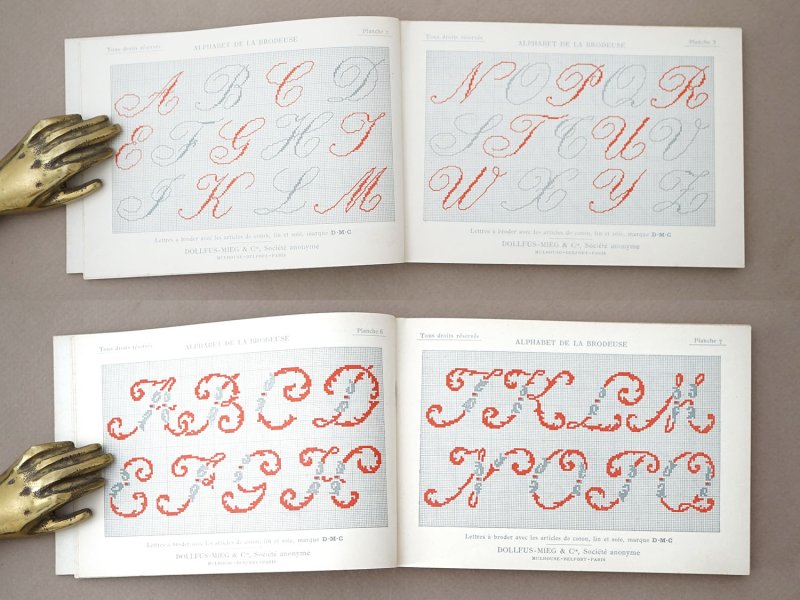 Tous droits réservés
ALPHABET DE LA BRODEUSE
Planche 2
A B C D
E F G H I
J K L M
Lettres à broder avec les articles de coton, lin et soie, marque D·M·C
DOLLFUS-MIEG & Cie, Société anonyme
MULHOUSE-BELFORT-PARIS
Tous droits réservés
ALPHABET DE LA BRODEUSE
Planche 3
N O P Q R
S T T U V
W X Y Z
Lettres à broder avec les articles de coton, lin et soie, marque D·M·C
DOLLFUS-MIEG & Cie, Société anonyme
MULHOUSE-BELFORT-PARIS
Tous droits réservés
ALPHABET DE LA BRODEUSE
Planche 6
A B C D
E F G H
Lettres à broder avec les articles de coton, lin et soie, marque D·M·C
DOLLFUS-MIEG & Cie, Société anonyme
MULHOUSE-BELFORT-PARIS
Tous droits réservés
ALPHABET DE LA BRODEUSE
Planche 7
J K L M
N O P Q
Lettres à broder avec les articles de coton, lin et soie, marque D·M·C
DOLLFUS-MIEG & Cie, Société anonyme
MULHOUSE-BELFORT-PARIS